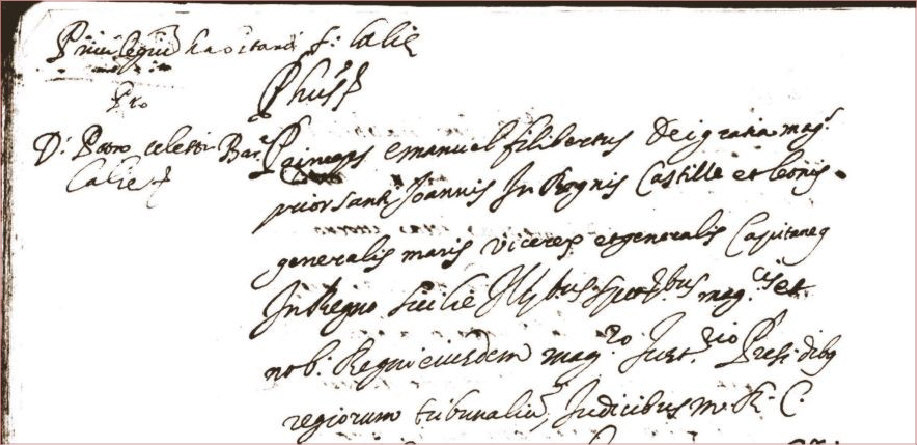 Privilegiũ habitandi s.ᵉ Calie
Pro
D. Petro Celestri Bar.
Calie
Phus
Princeps emanuel filibertus Dei gratia mag.
prior santi Joannis In Regnis Castille et leonis
generalis maris, vicerex et generalis Capitaneus
In Regno Sicilie Ill.bus Spect.bus mag.cis et
nob. Regni eiusdem mag.ro Just.rio Presidibus
regiorum tribunaliũ, Judicibus m. R. C.